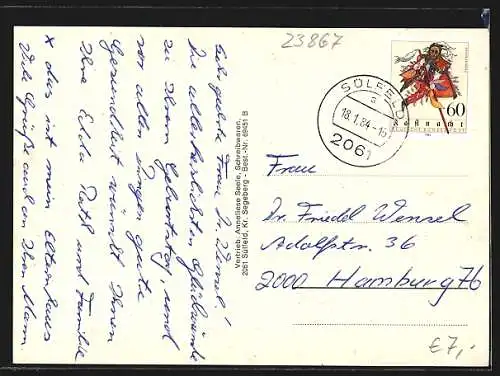 23867
Sehr geehrte Frau Dr. Wensel!
Die allerherzlichsten Glückwünsche
zu Ihrem Geburtstag, und
vor allen Dingen gute
Gesundheit wünscht Ihnen
Ihre Edda Rath und Familie
x das ist mein Elternhaus
Viele Grüße auch an Ihren Mann
Vertrieb: Anneliese Seelle, Schreibwaren,
2061 Sülfeld, Kr. Segeberg - Best.-Nr. 69451 B
SÜLFELD
a
18.1.84-16
2061
60
Faßnacht
DEUTSCHE BUNDESPOST
Frau
Dr. Friedel Wensel
Adolfstr. 36
2000 Hamburg 76
€ 7,-